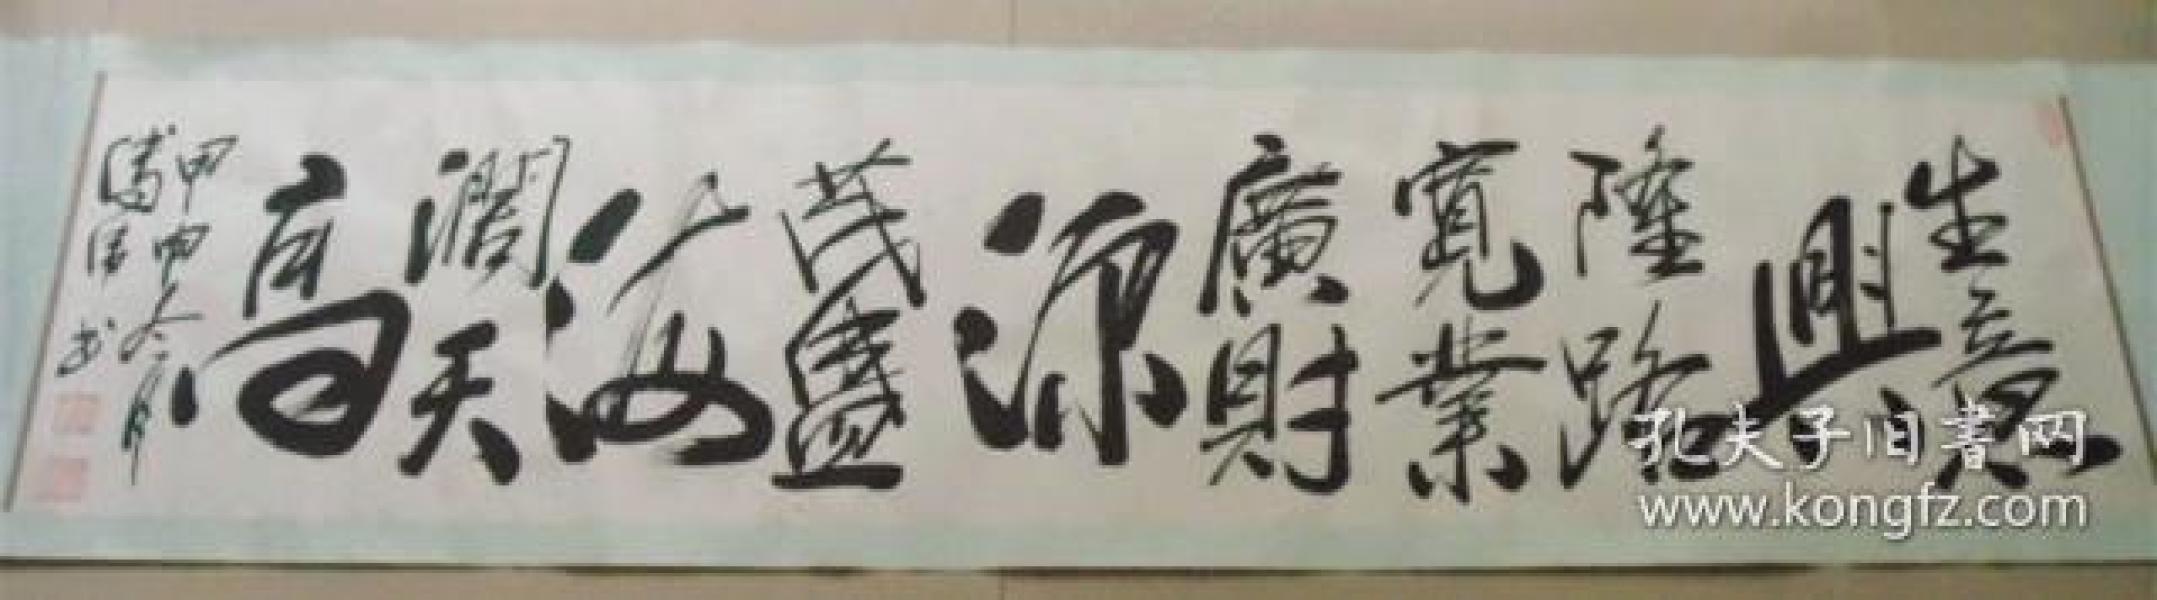 生意
興
隆路
寬業
廣財
源
茂盛
海
濶天
高
甲申冬月
孔夫子旧書网
www.kongfz.com